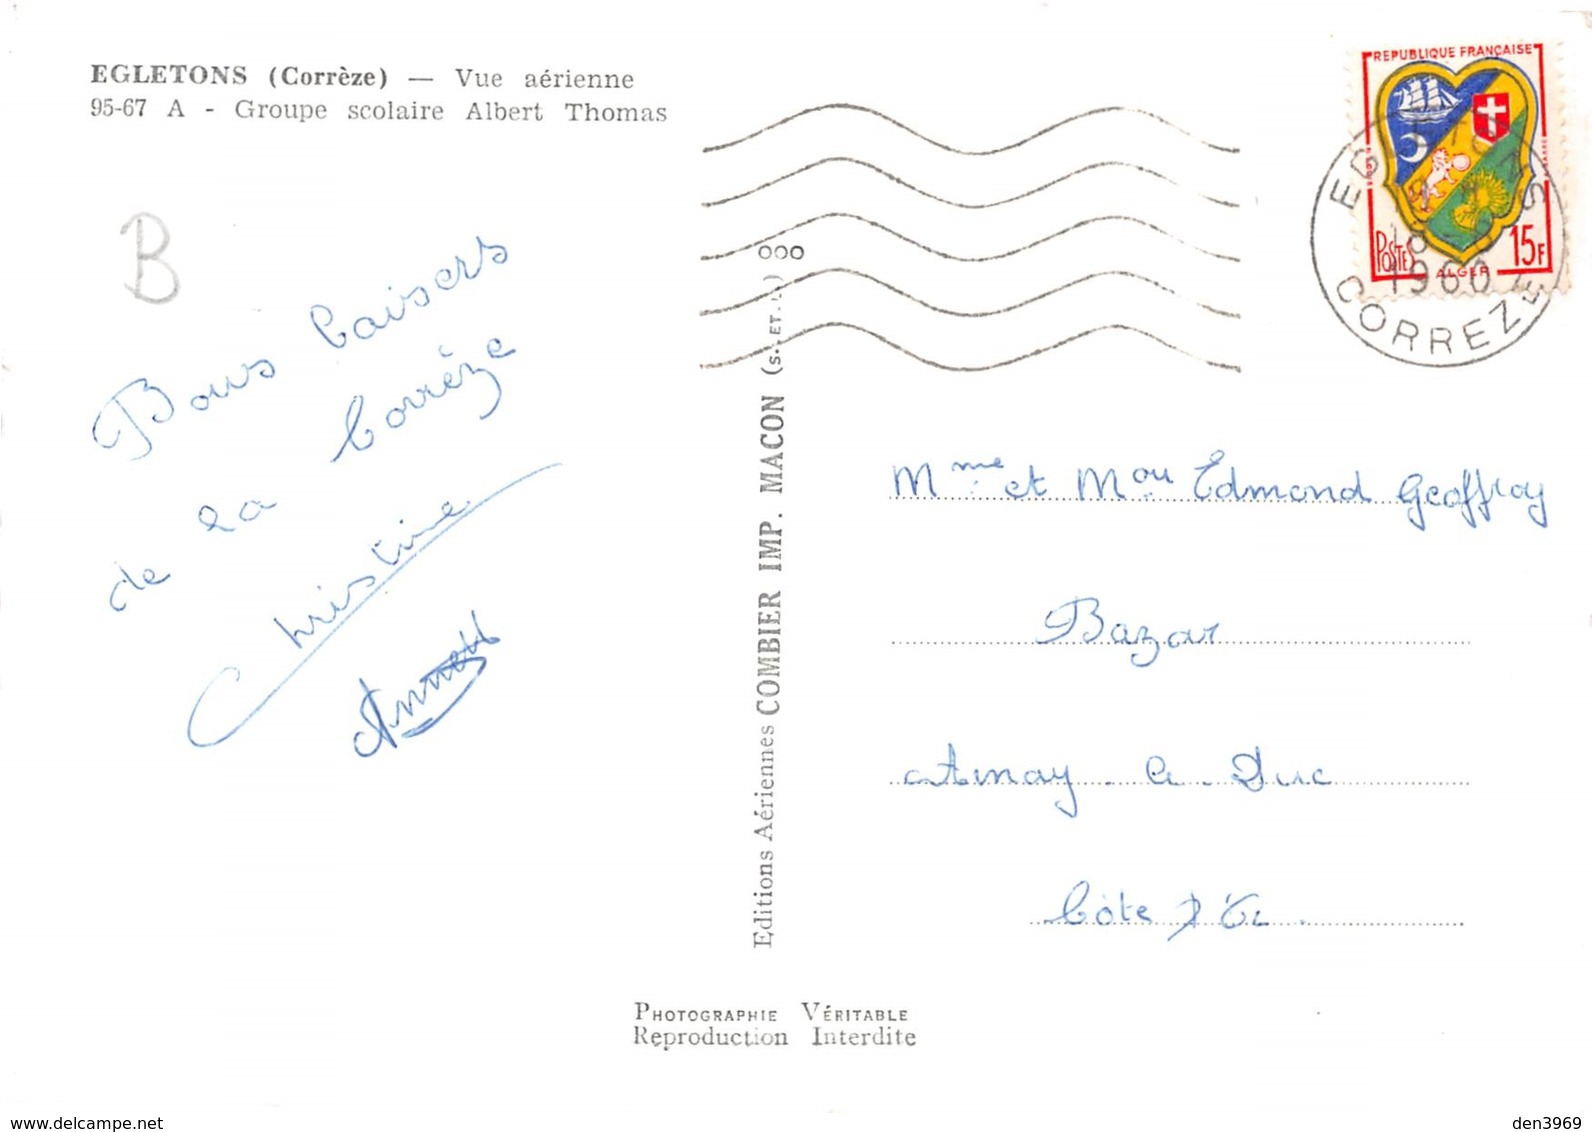 EGLETONS (Corrèze) — Vue aérienne
95-67 A - Groupe scolaire Albert Thomas
B
Bons baisers
de la Corrèze
Christine
Editions Aériennes COMBIER IMP. MACON (S.-ET-L.) OOO
REPUBLIQUE FRANÇAISE
POSTES
ALGER
15F
18
1960
CORREZE
Mme et Mou Edmond Geoffroy
Bazar
Arnay - le - Duc
Côte d'Or
PHOTOGRAPHIE VÉRITABLE
Reproduction Interdite
delcampe.net
den3969